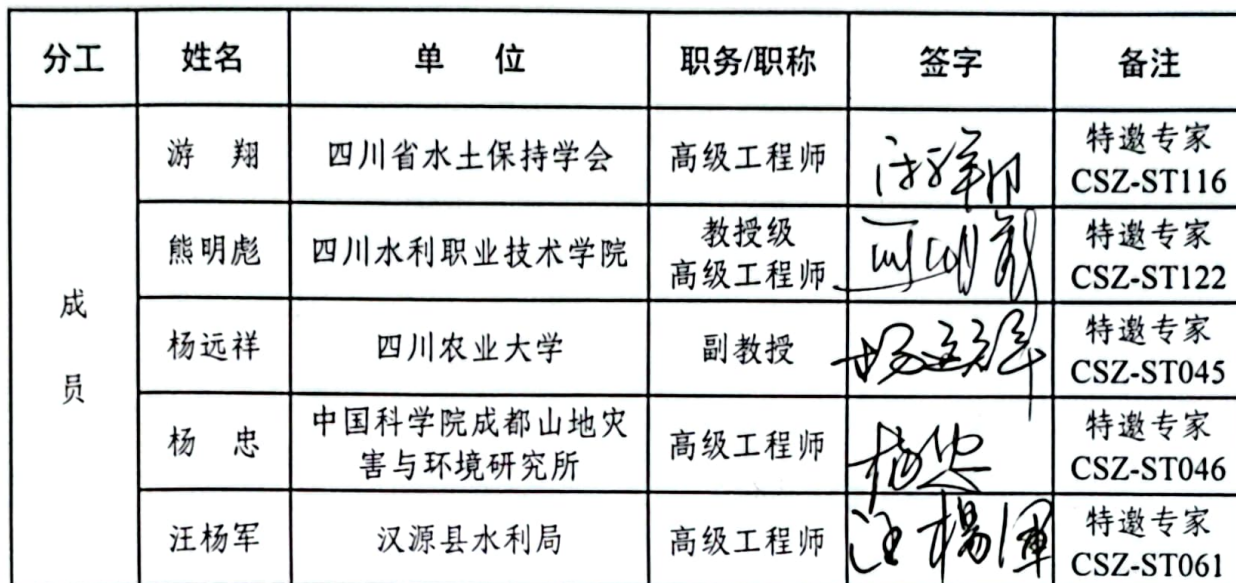 分工 姓名 单 位 职务/职称 签字 备注
成
员
游 翔 四川省水土保持学会 高级工程师 游翔 特邀专家
CSZ-ST116
熊明彪 四川水利职业技术学院 教授级
高级工程师 特邀专家
CSZ-ST122
杨远祥 四川农业大学 副教授 杨远祥 特邀专家
CSZ-ST045
杨 忠 中国科学院成都山地灾
害与环境研究所 高级工程师 杨忠 特邀专家
CSZ-ST046
汪杨军 汉源县水利局 高级工程师 汪楊軍 特邀专家
CSZ-ST061